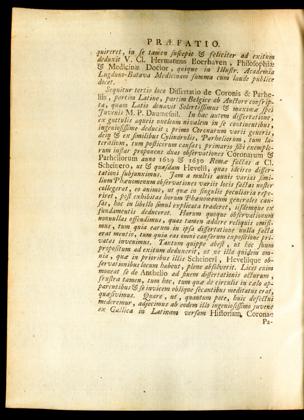 PRÆFATIO.
quireret, in se tamen suscepit & feliciter ad exitum
deduxit V. Cl. Hermannus Boerhaven, Philosophiæ
& Medicinæ Doctor, quique in Illustr. Academia
Lugduno-Batava Medicinam summa cum laude publice
docet.
Sequitur tertio loco Dissertatio de Coronis & Parhe-
liis, partim Latine, partim Belgice ab Auctore conscrip-
ta, quam Latio donavit Solertissimus &
Juvenis M. P. In hac autem dissertatione,
ex guttulis aqueis nucleum nivalem in se continentibus,
ingeniosissime deducit : primo Coronarum varii generis,
dein & ex similibus Cylindris, Parheliorum, tum la-
teralium, tum posticorum causas; primariis
rum instar proponens duas observationes Coronarum &
Parheliorum anno 1629 & 1630 Romæ factas a Cl.
Scheinero, ut & quasdam Hevelii, quas
tationi subjunximus. Jam a multis annis variis simi-
lium Phænomenum observationes variis locis factas noster
collegerat, eo animo, ut quæ in singulis peculiaria repe-
riret, post exhibitas horum Phænomenum generales cau-
sas, hoc in libello simul explicata traderet, iisdemque ex
fundamentis deduceret. Harum quoque observationum
nonnullas quas tamen addere religioni duxi-
mus, tum quia earum in ipsa dissertatione nulla facta
erat mentio, tum quia eas omni expositione pri-
vatas invenimus. Tantum quippe abest, ut hoc suum
propositum ad exitum deduxerit, ut ne ille quidem om-
nia, quæ in prioribus illis Scheineri, Heveliique ob-
servationibus locum habent, plene absolverit. Licet enim
moneat se de Anthelio ad finem dissertationis acturum,
frustra tamen, tum hoc, tum quæ de circulis in cœlo ap-
parentibus & se invicem oblique secantibus meditatus erat,
quæsivimus. Quare, ut, quantum pote, huic defectui
mederemur, adjecimus ab eodem illo ingeniosissimo juvene
ex Gallica in Latinam versam Historiam, Coronæ
Pa-